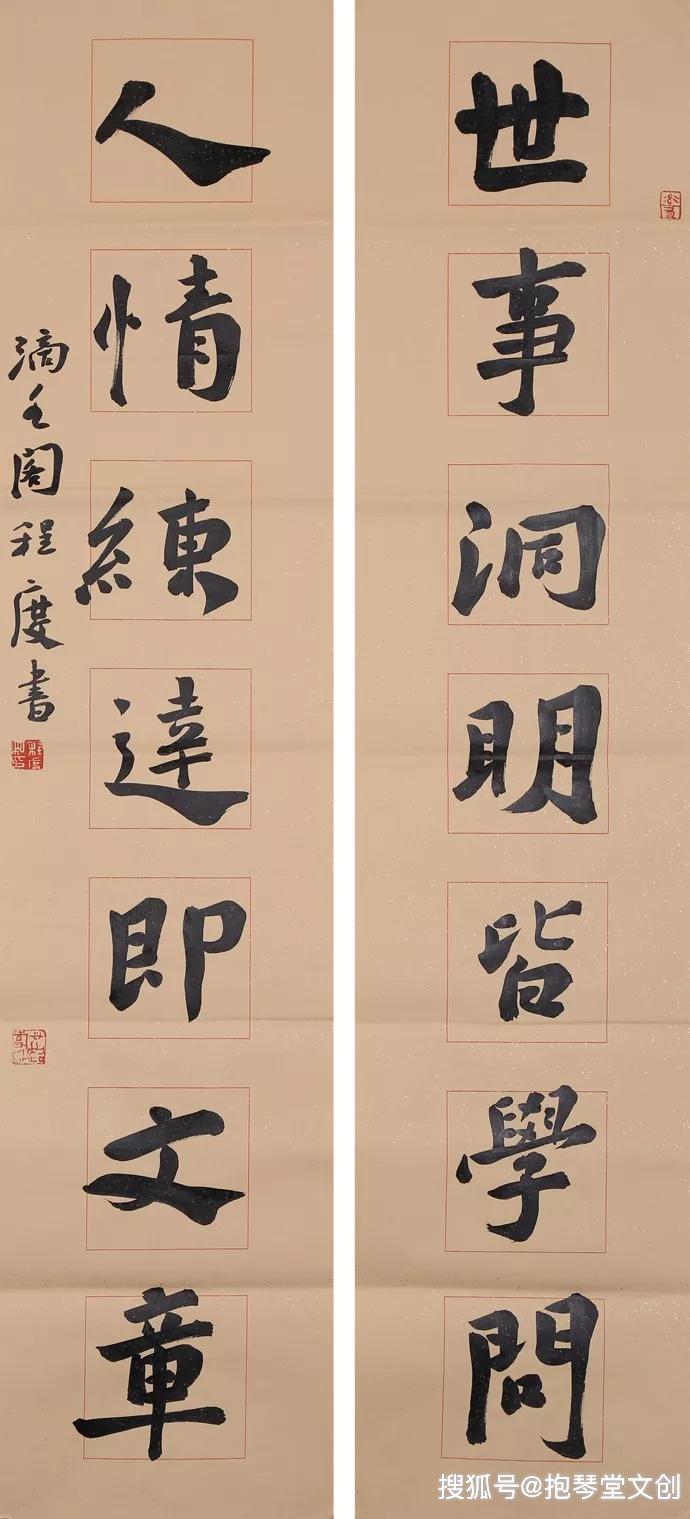 世事洞明皆學問
人情練達即文章
滴閣程度書
搜狐号@抱琴堂文创